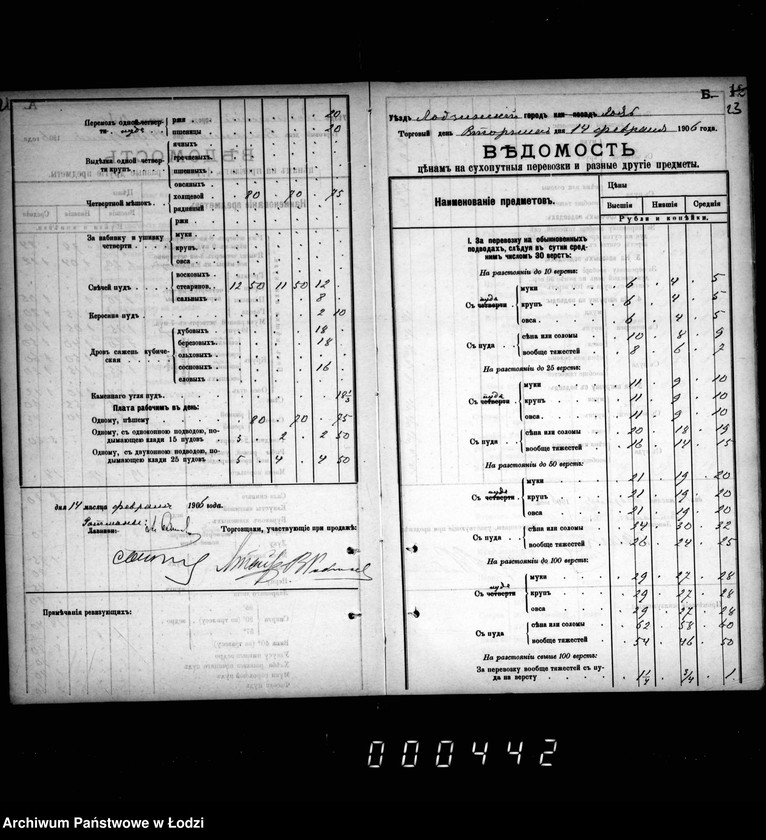 А
Перемолъ одной четвер-
ти пуда
ржи . . . . . 20
пшеницы . . . . . 20
Выдѣлка одной четвер-
ти крупъ.
ячныхъ
гречневыхъ.
пшенныхъ
овсяныхъ
Четвертной мѣшокъ.
холщевой 80 70 75
рядниный
За набивку и ушивку
четверти
ржи
муки
крупъ
овса
Свѣчей пудъ
восковыхъ
стеаринов. 12 50 11 50 12
сальныхъ 8
Керосина пудъ 2 10
Дровъ сажень кубиче-
ская
дубовыхъ 18
березовыхъ 18
ольховыхъ
сосновыхъ 16
еловыхъ
Каменнаго угля пудъ 18 1/3
Плата рабочимъ въ день:
Одному, пѣшему 80 70 75
Одному, съ одноконною подводою, по-
дымающею клади 15 пудовъ 3 2 2 50
Одному, съ двуконною подводою, по-
дымающею клади 25 пудовъ 5 4 4 50
дня 14 мѣсяца февраля 1906 года.
Лавники:
Торговщики, участвующіе при продажѣ:
Примѣчанія ревизующихъ:
Б.
23
Уѣздъ Лодзинскій городъ или посадъ Лодзь
Торговый день Вторникъ дня 14 февраля 1906 года.
ВѢДОМОСТЬ
цѣнамъ на сухопутныя перевозки и разные другіе предметы.
Наименованіе предметовъ.
Цѣны
Высшія Низшія Среднія
Рубли и копѣйки.
I. За перевозку на обыкновенныхъ
подводахъ, слѣдуя въ сутки сред-
нимъ числомъ 30 верстъ:
На разстояніи до 10 верстъ:
Съ четверти пуда
муки 6 4 5
крупъ 6 4 5
овса 6 4 5
Съ пуда
сѣна или соломы 10 8 9
вообще тяжестей 8 6 7
На разстояніи до 25 верстъ:
Съ четверти пуда
муки 11 9 10
крупъ 11 9 10
овса 11 9 10
Съ пуда
сѣна или соломы 20 18 19
вообще тяжестей 16 14 15
На разстояніи до 50 верстъ:
Съ четверти пуда
муки 21 19 20
крупъ 21 19 20
овса 21 19 20
Съ пуда
сѣна или соломы 34 30 32
вообще тяжестей 26 24 25
На разстояніи до 100 верстъ:
Съ четверти пуда
муки 29 27 28
крупъ 29 27 28
овса 29 27 28
Съ пуда
сѣна или соломы 62 58 60
вообще тяжестей 54 46 50
На разстояніи свыше 100 верстъ:
За перевозку вообще тяжестей съ пу-
да на версту 1 1/4 3/4 1
000442
Archiwum Państwowe w Łodzi